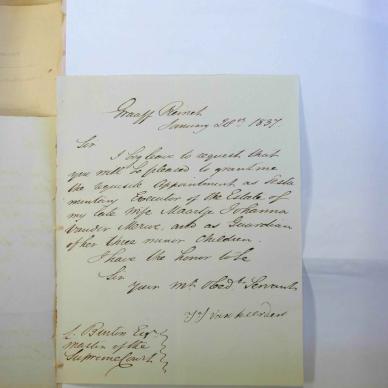 Graaff Reinet
January 28th 1837
Sir
I beg leave to request that
you will be pleased to grant me
the requisite Appointment as Testa
mentary Executor of the Estate of
my late Wife Maartje Johanna
vander Merwe, and as Guardian
of her three minor Children.
I have the honor to be
Sir
Your Mt Obedt Servant
van Heerden
C. Burton Esqr
Master of the
Supreme Court